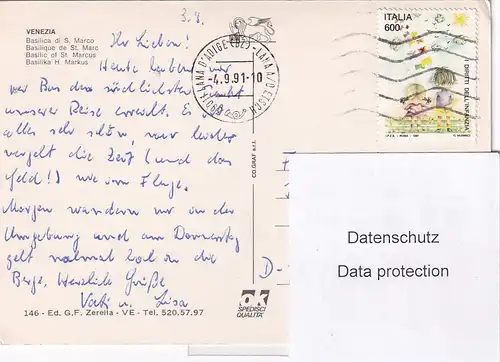 3.9.
VENEZIA
Basilica di S. Marco
Basilique de St. Marc
Basilic of St. Marcus
Basilika H. Markus
Ihr Lieben!
Heute haben wir
den südlichsten Punkt
unserer Reise erreicht. Es ist
alles sehr schön, nur leider
vergeht die Zeit (und das
Geld!) wie im Fluge.
Morgen wandern wir in der
Umgebung und am Donnerstag
geht nochmal in die
Berge. Herzliche Grüße
Vati u. Lisa
146 - Ed. G.F. Zerella - VE - Tel. 520.57.97
CO.GRAF s.r.l.
ok
SPEDISCI
QUALITÀ
LANA D'ADIGE (BZ) - LANA A/D ETSCH
-4.9.91-10
ITALIA
600
I DIRITTI DELL'INFANZIA
D-
Datenschutz
Data protection